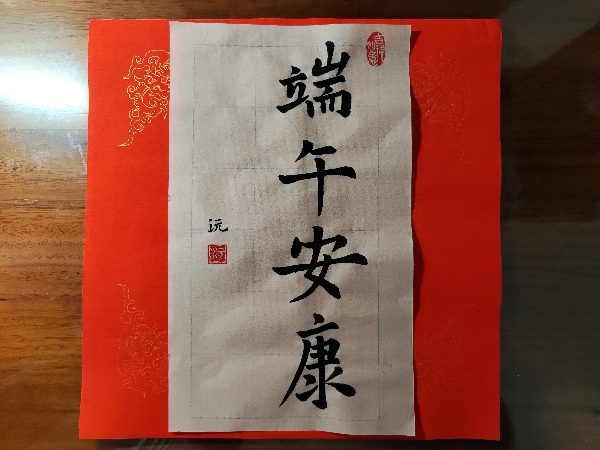 端午安康
沅